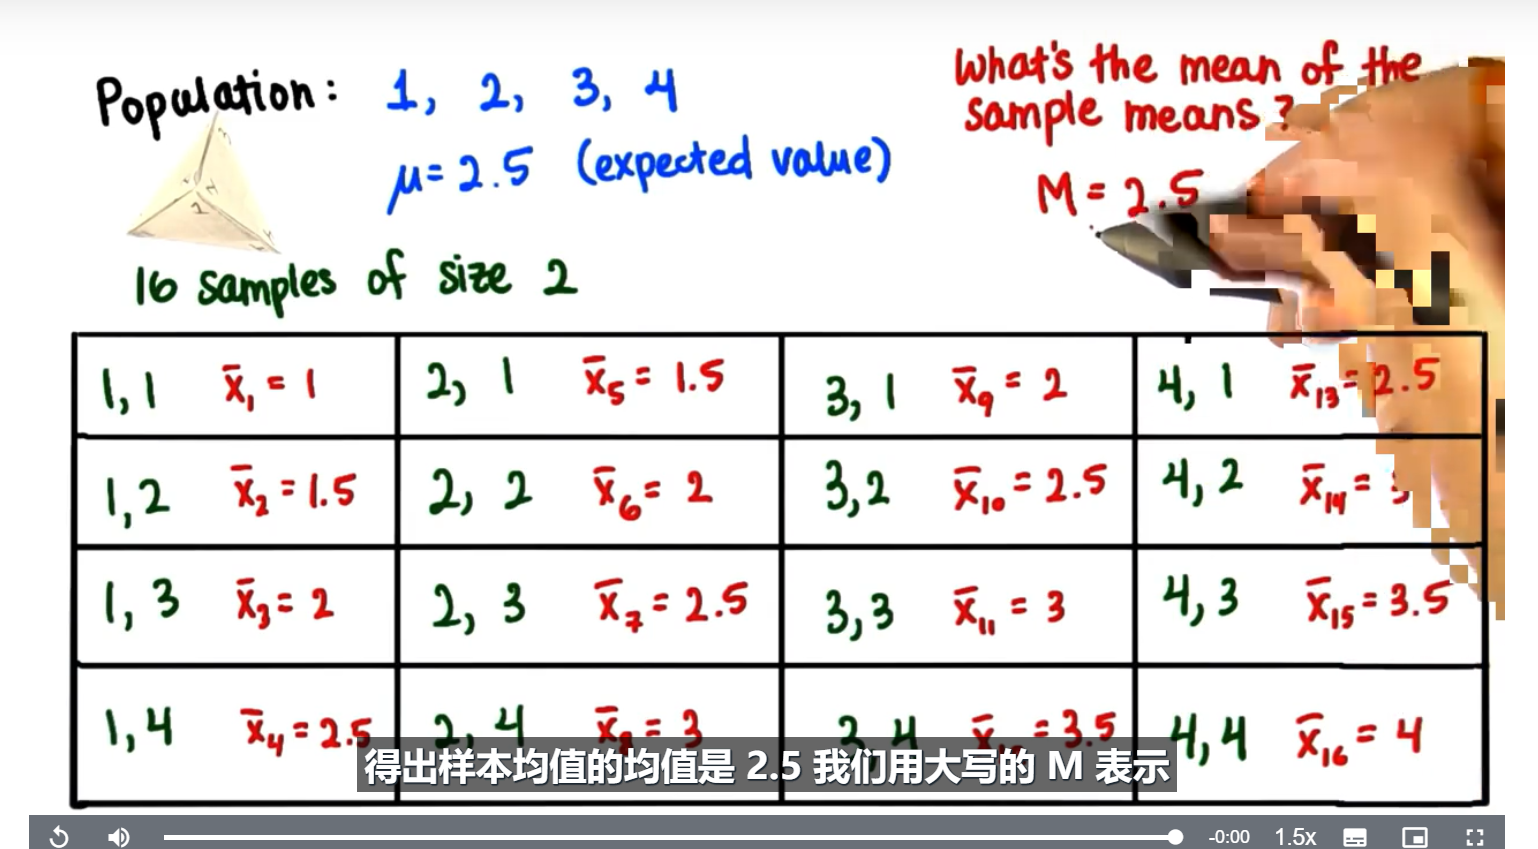 Population: 1, 2, 3, 4
μ = 2.5 (expected value)
What's the mean of the
sample means?
M = 2.5
16 samples of size 2
1, 1 x̄₁ = 1 2, 1 x̄₅ = 1.5 3, 1 x̄₉ = 2 4, 1 x̄₁₃ = 2.5
1, 2 x̄₂ = 1.5 2, 2 x̄₆ = 2 3, 2 x̄₁₀ = 2.5 4, 2 x̄₁₄ =
1, 3 x̄₃ = 2 2, 3 x̄₇ = 2.5 3, 3 x̄₁₁ = 3 4, 3 x̄₁₅ = 3.5
1, 4 x̄₄ = 2.5 2, 4 x̄₈ = 3 3, 4 x̄ = 3.5 4, 4 x̄₁₆ = 4
得出样本均值的均值是 2.5 我们用大写的 M 表示
-0:00 1.5x